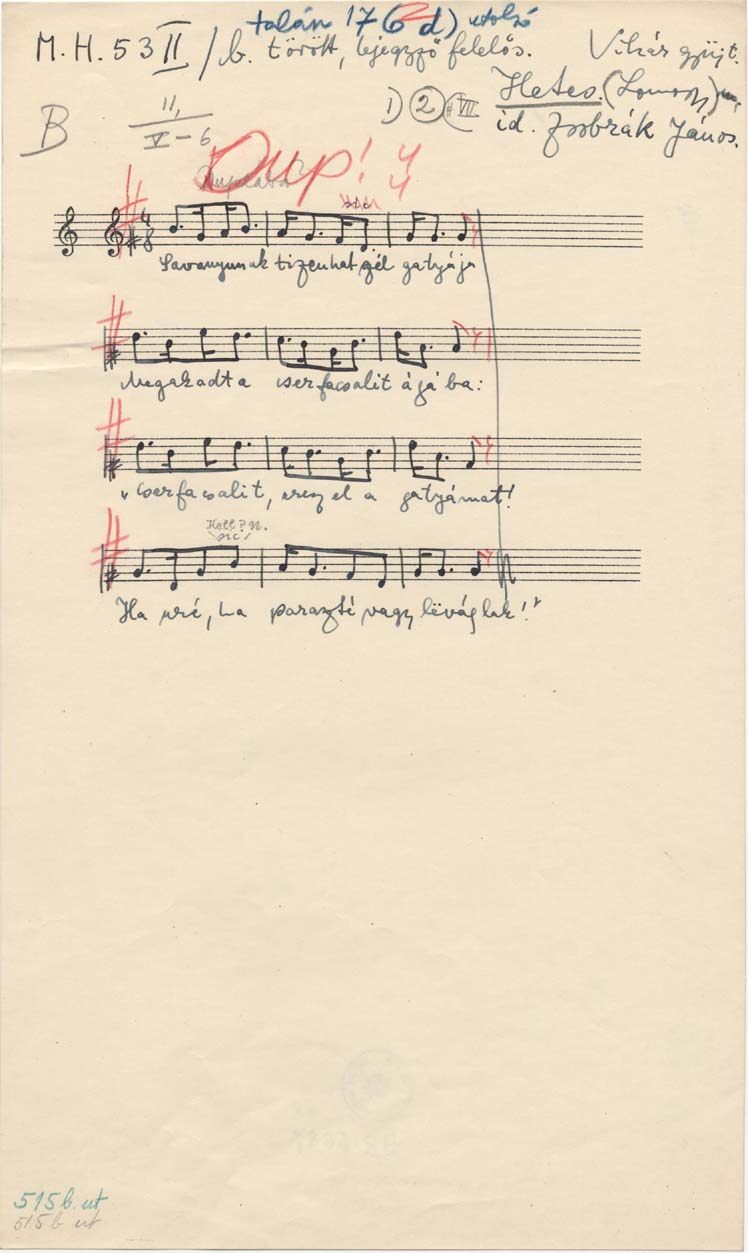 talán 176 2 d) utolsó
M. H. 53 II / b. törött, lejegyző felelős. Vikár gyűjt.
Hetes. (Somogy) m.
B II, V–6 1) 2 (#VII id. Zsobrák János.
Dup! 4 4
4 8 sic
Savanyunak tizenhat gél gatyája
Megakadt a cserfacsalit ágába:
„cserfacsalit, eresz el a gatyámat!
Hell? N.
sic!
Ha uré, ha parazté vagy lëváglak!"
515 b. ut
515 b ut